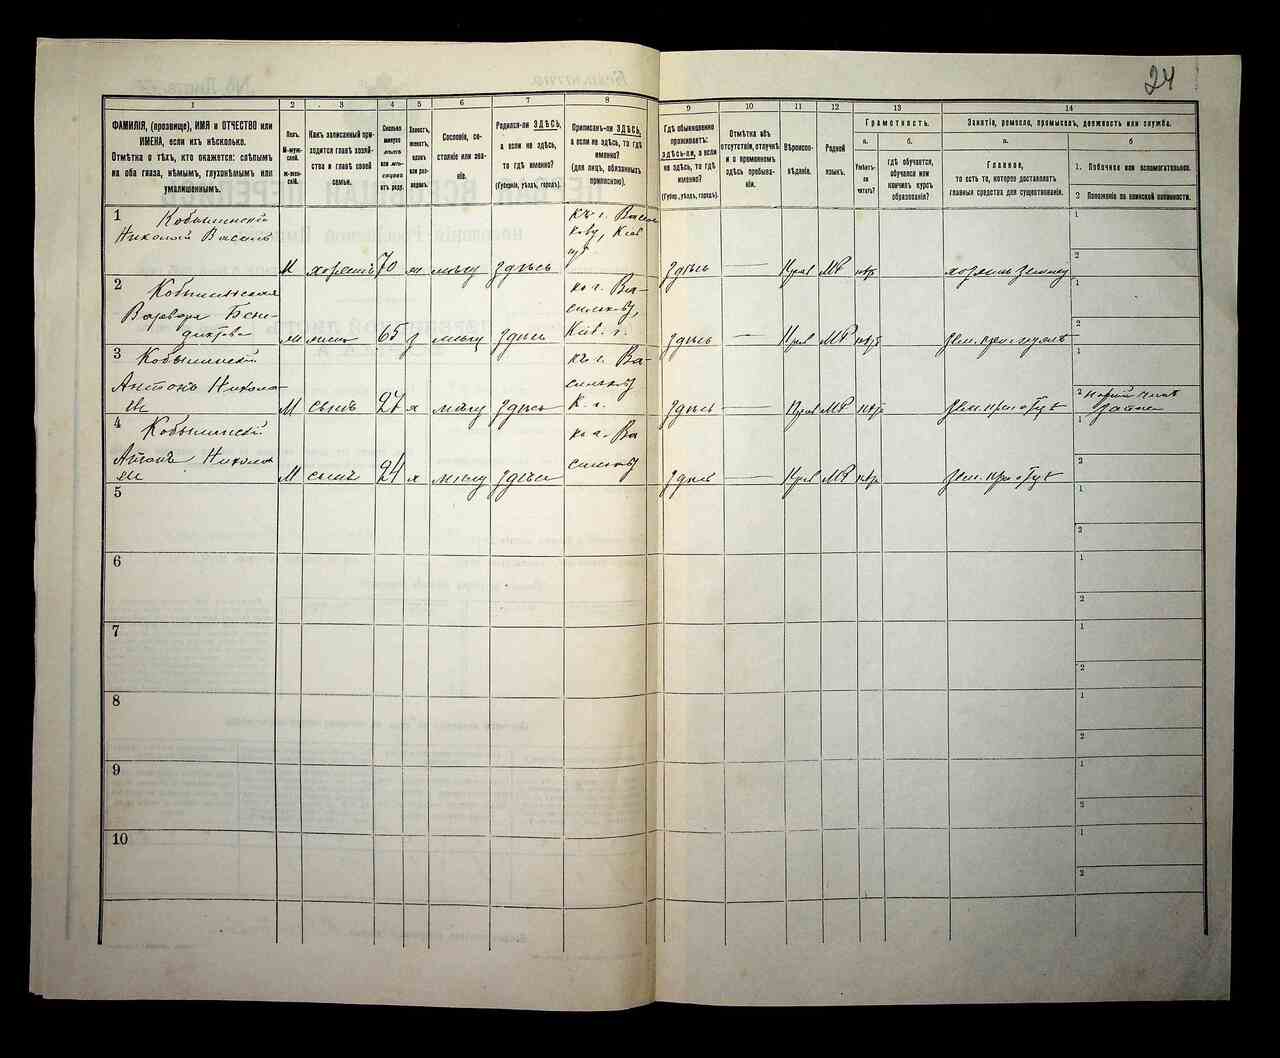 24
1
2
3
4
5
6
7
8
9
10
11
12
13
14
ФАМИЛІЯ, (прозвище), ИМЯ и ОТЧЕСТВО или
ИМЕНА, если ихъ нѣсколько.
Отмѣтка о тѣхъ, кто окажется: слѣпымъ
на оба глаза, нѣмымъ, глухонѣмымъ или
умалишеннымъ.
Полъ.
М-муж-
ской.
ж-жен-
скій.
Какъ записанный при-
ходится главѣ хозяй-
ства и главѣ своей
семьи.
Сколько
минуло
лѣтъ
или мѣ-
сяцевъ
отъ роду.
Холостъ,
женатъ,
вдовъ
или раз-
веденъ.
Сословіе, со-
стояніе или зва-
ніе.
Родился-ли ЗДѢСЬ,
а если не здѣсь,
то гдѣ именно?
(Губернія, уѣздъ, городъ).
Приписанъ-ли ЗДѢСЬ,
а если не здѣсь, то гдѣ
именно?
(для лицъ, обязанныхъ
припискою).
Гдѣ обыкновенно
проживаетъ:
здѣсь-ли, а если
не здѣсь, то гдѣ
именно?
(Губер., уѣздъ, городъ).
Отмѣтка объ
отсутствіи, отлучкѣ
и о временномъ
здѣсь пребыва-
ніи.
Вѣроиспо-
вѣданіе.
Родной
языкъ.
Грамотность.
а.
Умѣетъ-
ли
читать?
б.
гдѣ обучается,
обучался или
кончилъ курсъ
образованія?
Занятіе, ремесло, промыселъ, должность или служба.
а.
Главное,
то есть то, которое доставляетъ
главныя средства для существованія.
б
1. Побочное или вспомогательное.
2 Положеніе по воинской повинности.
1
Кобылинскій
Николай Василь
М
хозяинъ
70
ж
мѣщ
Здѣсь
къ г. Васил
Кіев
Здѣсь
—
Прав
МР
нѣтъ
1
2
2
Кобылинская
Варвара Бене-
диктова
жена
65
Здѣсь
къ г. Ва-
силькову,
Кіев. г.
Здѣсь
—
Прав
МР
нѣтъ
1
2
3
Кобылинскій
Антонъ Никола-
евъ
М
сынъ
27
х
мѣщ
Здѣсь
къ г. Ва-
силькову
К. г.
Здѣсь
—
Прав
МР
нѣтъ
1
2
4
Кобылинскій
Антонъ Никола
М
сынъ
24
х
мѣщ
Здѣсь
къ г. Ва
сильков
Здѣсь
—
Прав
МР
нѣтъ
1
2
5
1
2
6
1
2
7
1
2
8
1
2
9
1
2
10
1
2